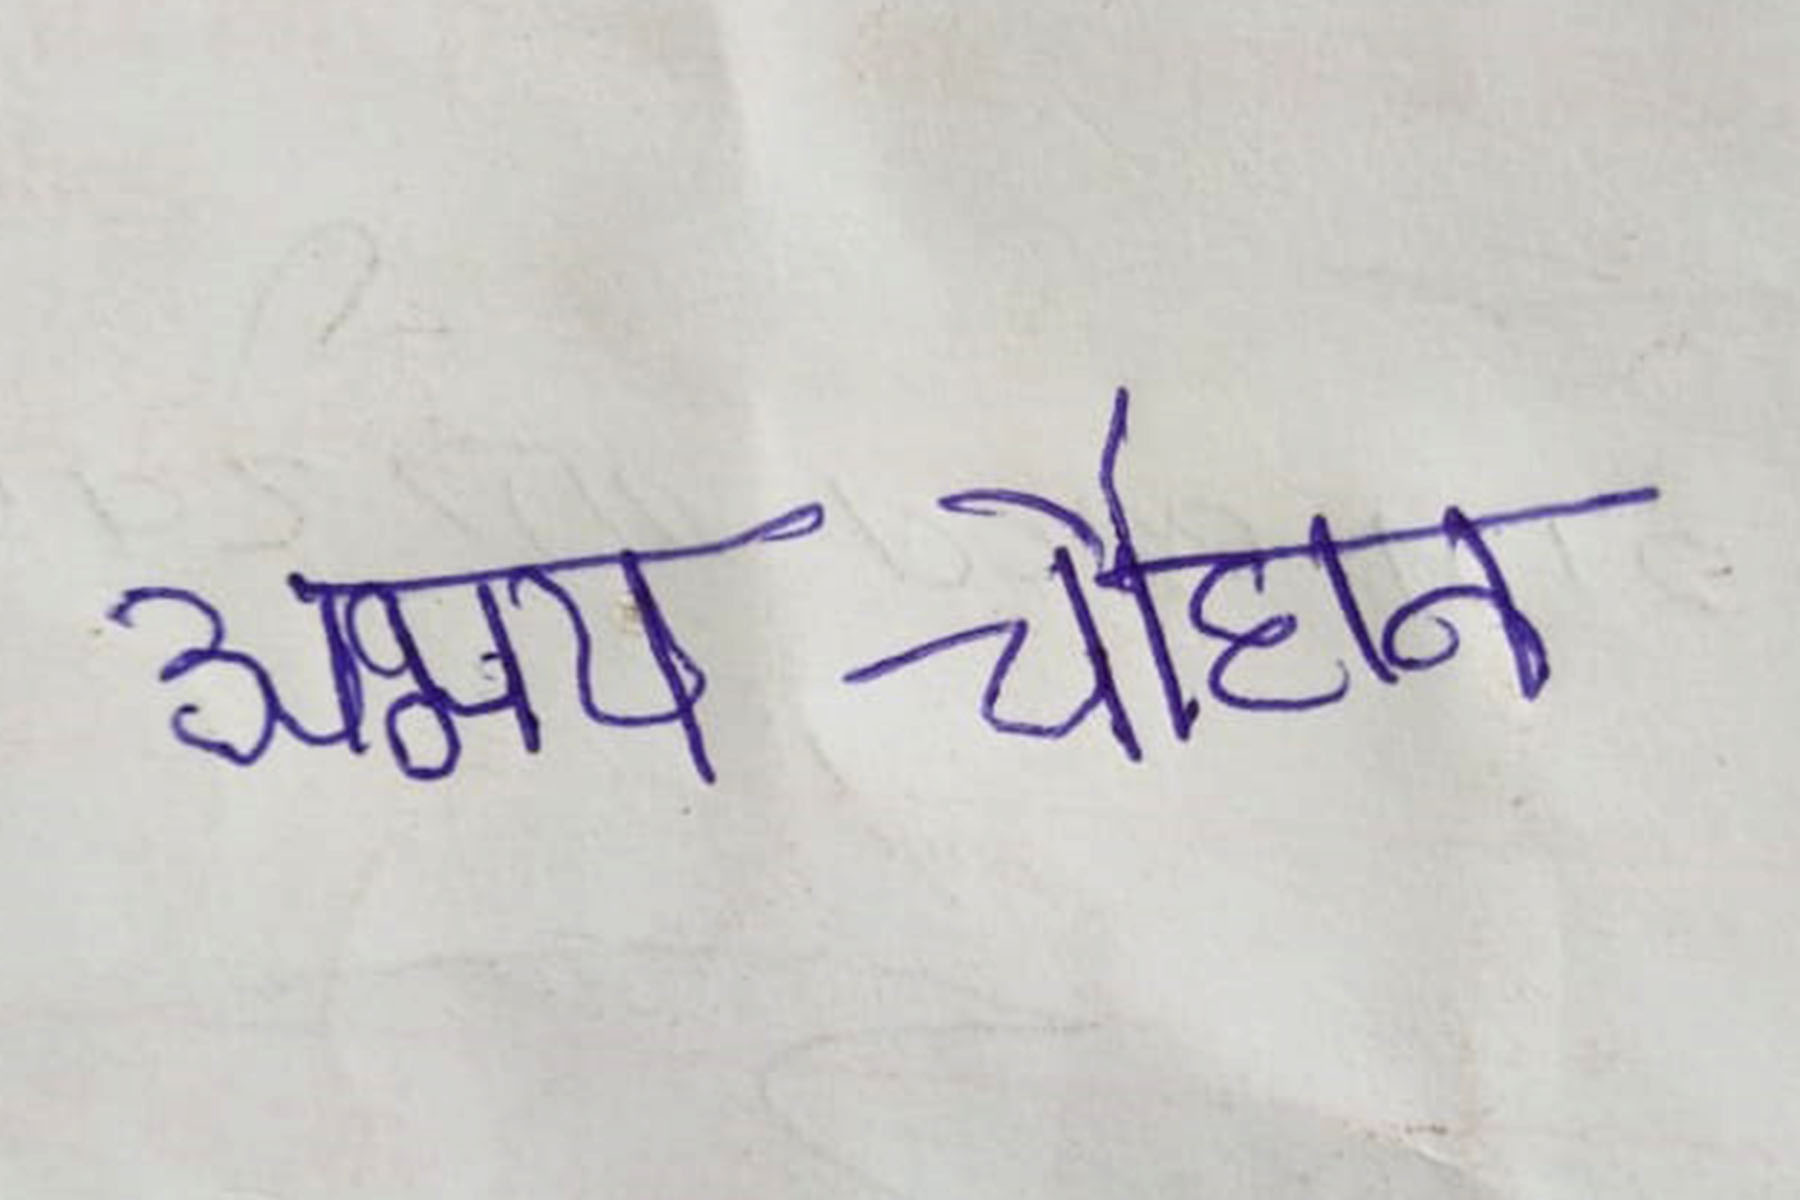 अक्षय चौहान